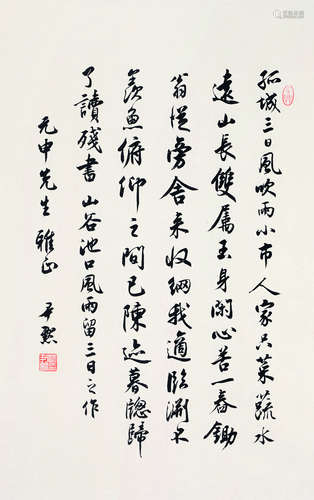 孤城三日風吹雨小市人家只菜蔬水
遠山長雙屬玉身閑心苦一舂鋤
翁從旁舍來收網我適臨淵不
羨魚俯仰之間已陳迹暮牕歸
了讀殘書 山谷池口風雨留三日之作
元申先生雅正 尹默